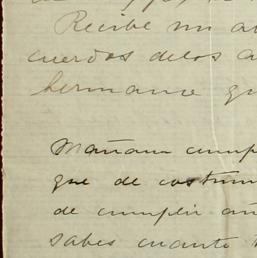 Recibe mi a
cuerdos delos a
hermano q
Mañana cump
que de costum
de cumplir añ
sabes cuanto t